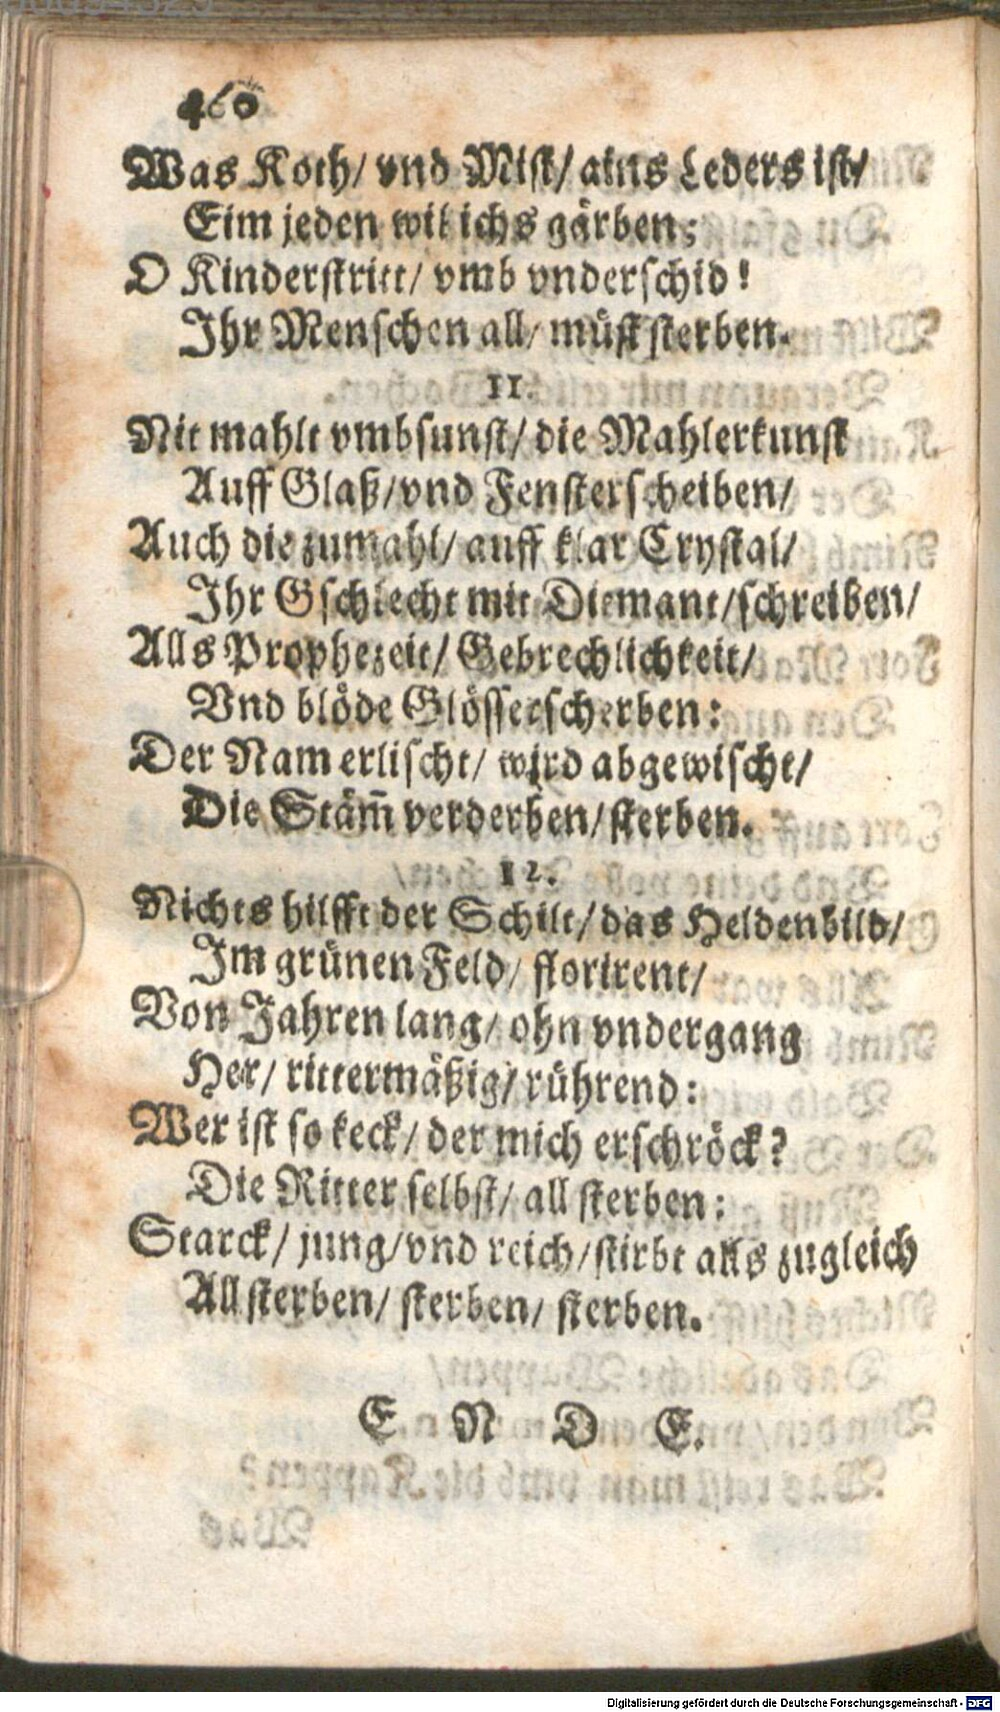 460
Was Koth/ vnd Mist/ ains Leders ist/
Eim jeden wil ichs gärben;
O Kinderstritt/ vmb vnderschid!
Ihr Menschen all/ müst sterben.
11.
Nit mahlt vmbsunst/ die Mahlerkunst
Auff Glaß/ vnd Fensterscheiben/
Auch die zumahl/ auff klar Crystal/
Ihr Gschlecht mit Diemant/ schreiben/
Alls Prophezeit/ Gebrechlichkeit/
Vnd blöde Glösserscherben:
Der Nam erlischt/ wird abgewischt/
Die Stäm̃ verderben/ sterben.
12.
Nichts hilfft der Schilt/ das Heldenbild/
Im grünen Feld/ florirent/
Von Jahren lang/ ohn vndergang
Her/ rittermäßig/ rührend:
Wer ist so keck/ der mich erschröck?
Die Ritter selbst/ all sterben:
Starck/ jung/ vnd reich/ stirbt alls zugleich
All sterben/ sterben/ sterben.
E N D E.
Digitalisierung gefördert durch die Deutsche Forschungsgemeinschaft - DFG